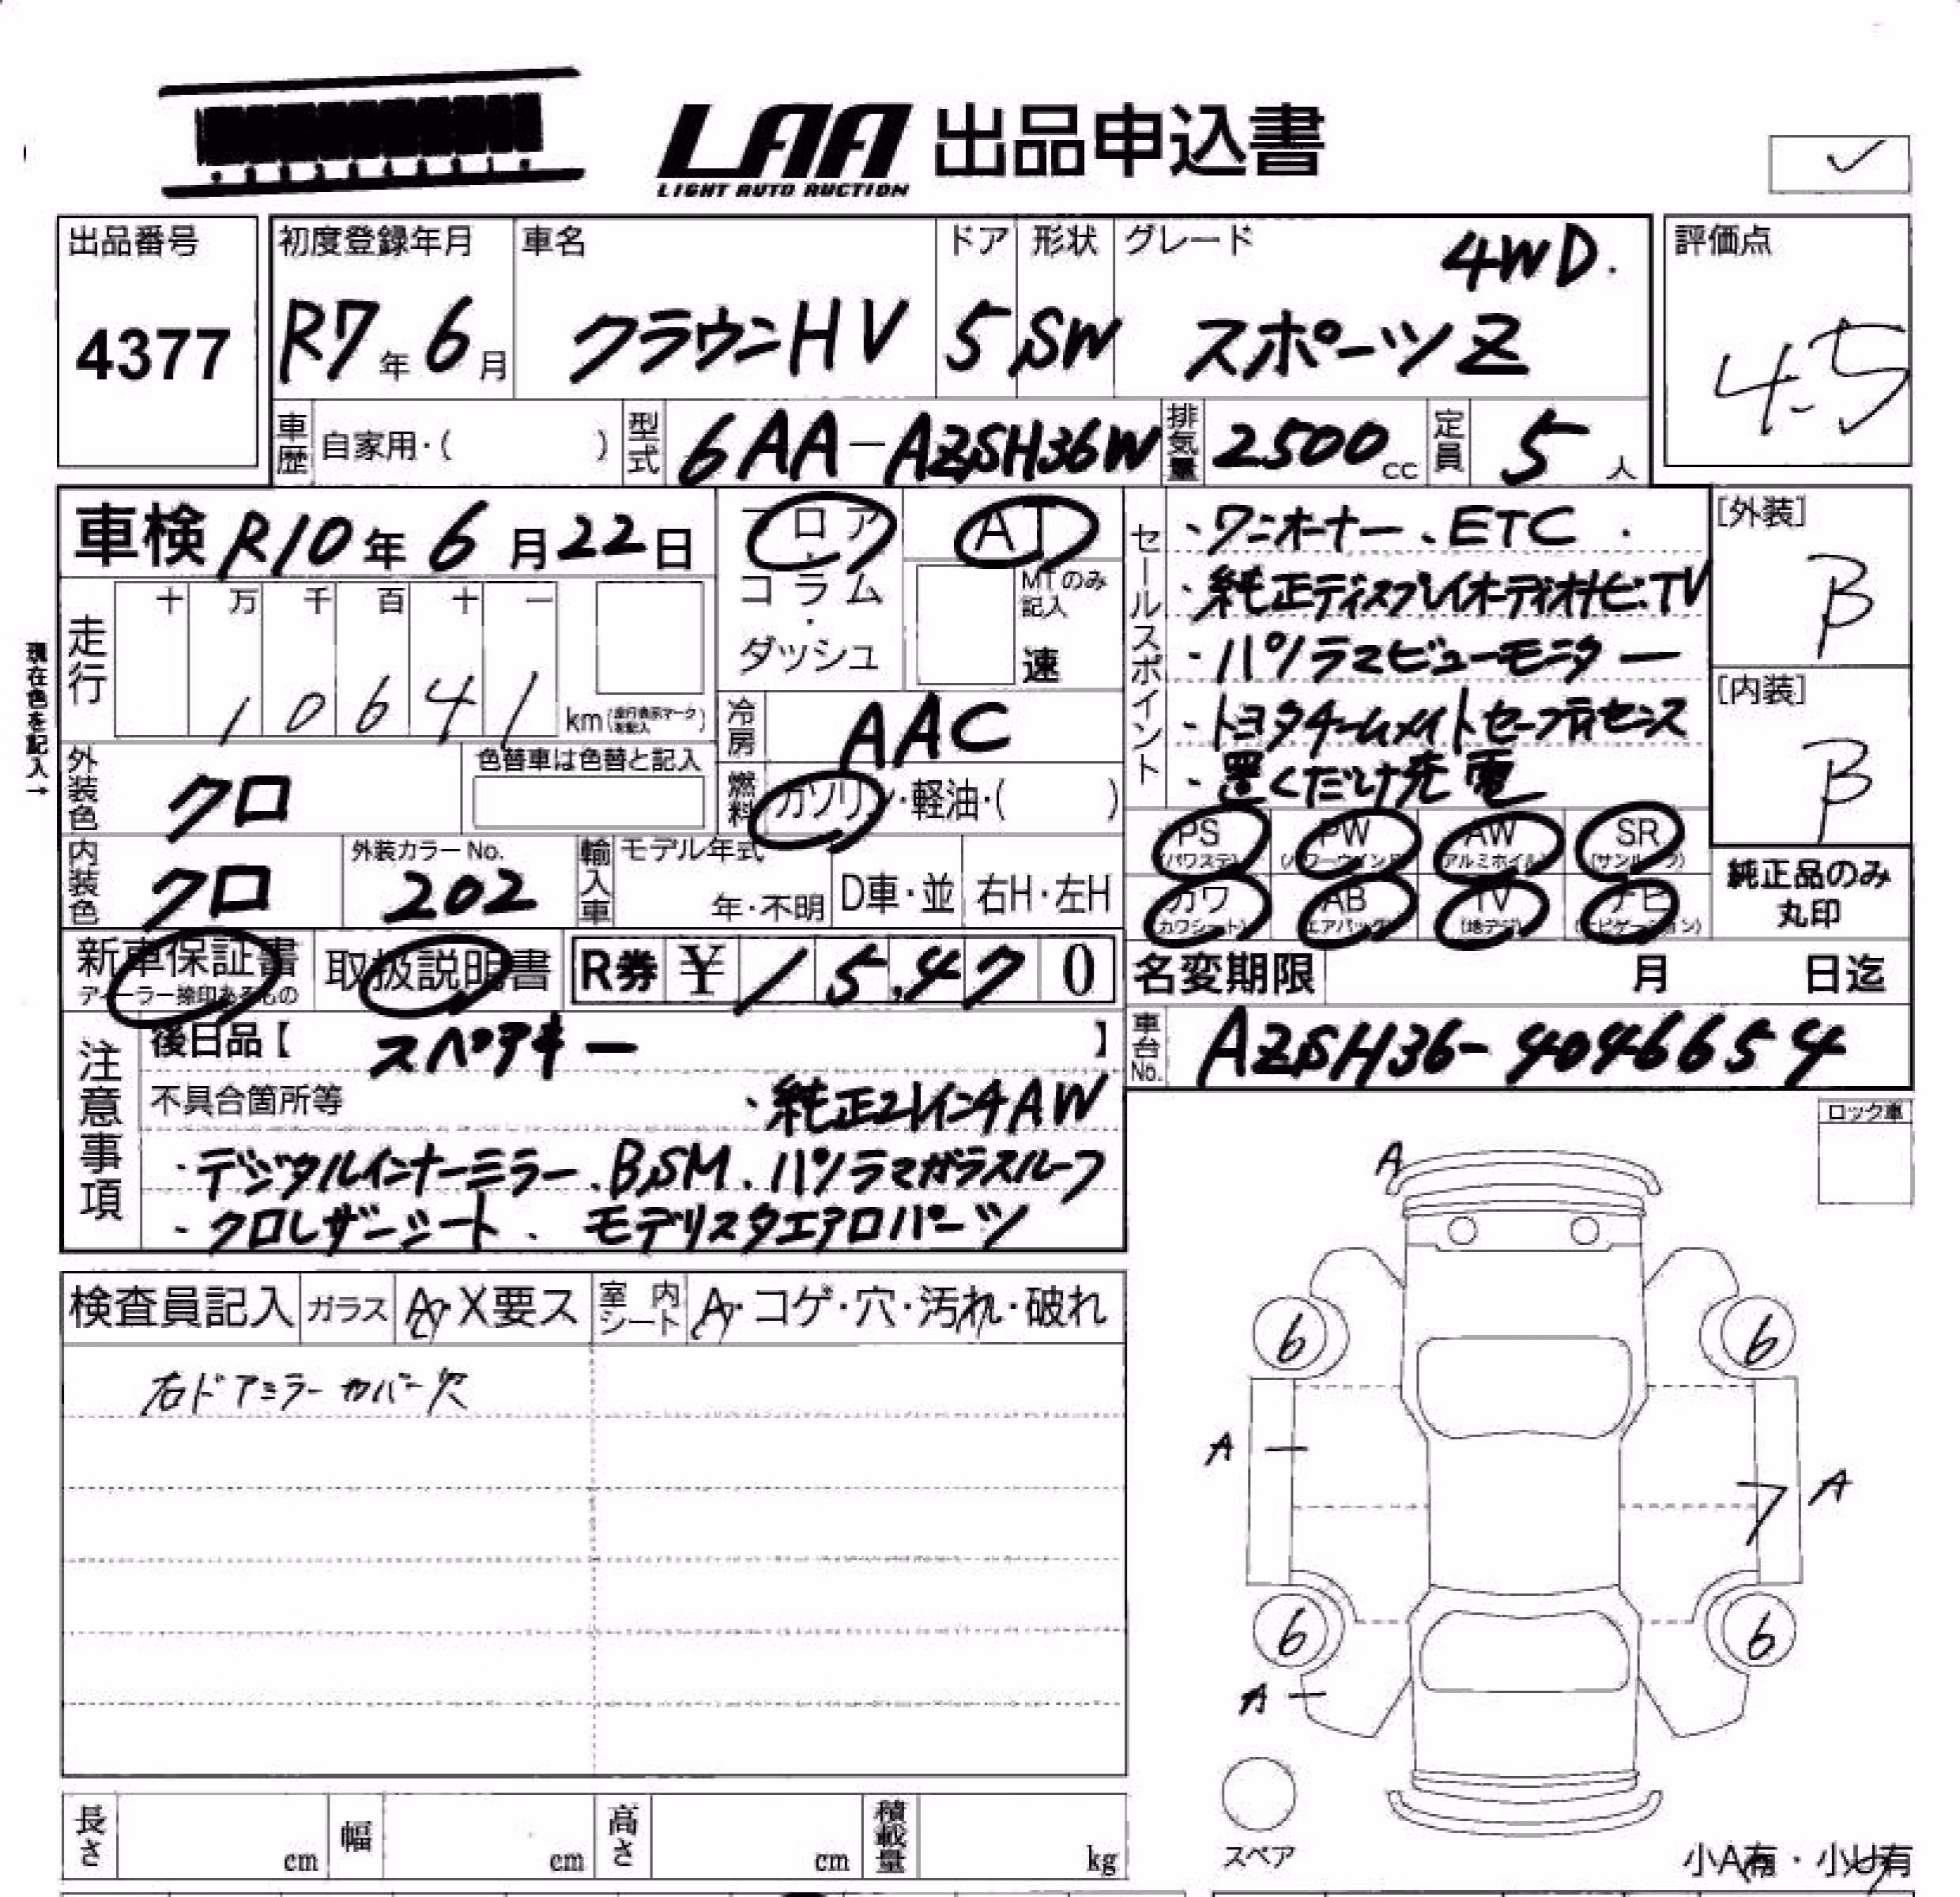 LAA 出品申込書
LIGHT AUTO AUCTION
出品番号
4377
初度登録年月
R7年6月
車名
クラウンHV
ドア
5
形状
SW
グレード
4WD.
スポーツZ
評価点
4.5
車歴 自家用・( )
型式 6AA-AZSH36W
排気量 2500cc
定員 5人
車検 R10年6月22日
フロア・コラム・ダッシュ
AT
MTのみ記入
速
走行 十 万 千 百 十 一
10641 km (走行表示マーク を記入)
現在色を記入→
冷房 AAC
外装色 クロ
色替車は色替と記入
燃料 ガソリン・軽油・( )
内装色 クロ
外装カラーNo.
202
輸入車 モデル年式
年・不明
D車・並
右H・左H
セールスポイント
・ワンオーナー、ETC.
・純正ディスプレイオーディオナビ.TV
・パノラマビューモニター
・トヨタチームメイトセーフティセンス
・置くだけ充電
[外装]
B
[内装]
B
PS (パワステ) PW (パワーウインド) AW (アルミホイル) SR (サンルーフ)
カワ (カワシート) AB (エアバッグ) TV (地デジ) ナビ (ナビゲーション)
純正品のみ丸印
新車保証書
ディーラー捺印あるもの
取扱説明書
R券 ¥15,470
名変期限 月 日迄
車台No. AZSH36-4046654
注意事項
後日品【 スペアキー 】
不具合箇所等 ・純正21インチAW
・デジタルインナーミラー、BSM、パノラマガラスルーフ
・クロレザーシート、モデリスタエアロパーツ
ロック車
検査員記入 ガラス A・X要ス 室内シート A・コゲ・穴・汚れ・破れ
右ドアミラーカバー欠
A
6 6
A A
6 6
A
スペア
小A有・小U有
長さ cm 幅 cm 高さ cm 積載量 kg